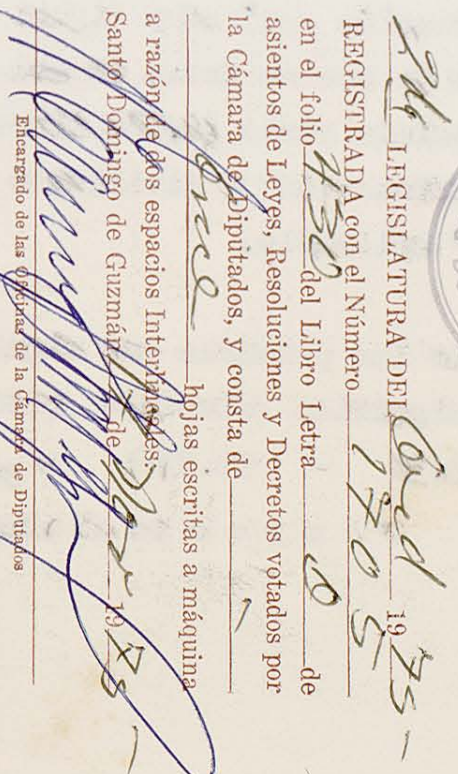 2da LEGISLATURA DEL Ord 1975-
REGISTRADA con el Número 1705
en el folio 430 del Libro Letra O de
asientos de Leyes, Resoluciones y Decretos votados por
la Cámara de Diputados, y consta de
once hojas escritas a máquina
a razón de dos espacios Interlineales.
Santo Domingo de Guzmán, de 1975-
Encargado de las Oficinas de la Cámara de Diputados